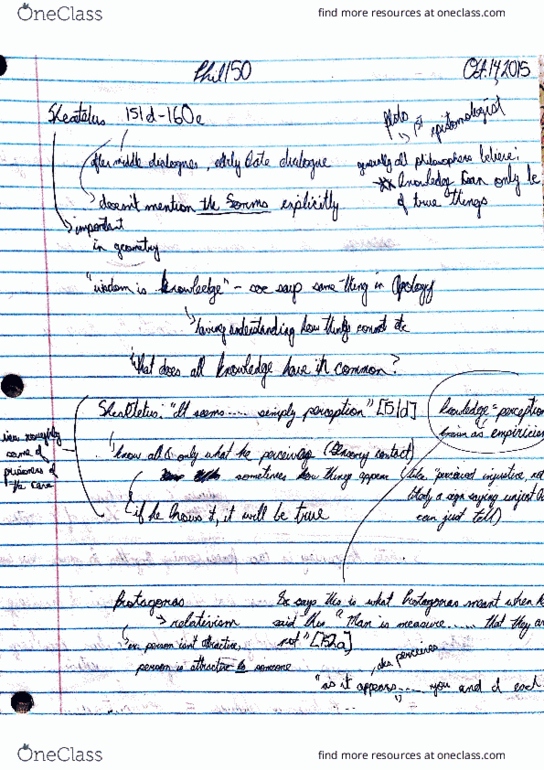 OneClass
find more resources at oneclass.com
Phil150
Oct. 14, 2015
Theatetus 151d-160e
plato
1st epistomologist
after middle dialogues, early late dialogue
generally all philosophers believe:
** knowledge can only be
of true things
doesn't mention the Forms explicitly
important
in geometry
"wisdom is knowledge" - soc says same thing in Apology
having understanding how things connect etc
What does all knowledge have in common?
Theatetus: "It seems ..... simply perception" [151d]
knowledge = perception
known as empiricism
view roughly
same as
prisoners of
the cave
know all & only what he perceives (sensory contact)
sometimes how things appear (like "perceived injustice, not
a sign saying unjest
can just tell)
if he knows it, it will be true
Protagoras
relativism
ex person isn't attractive,
person is attractive to someone
Soc says this is what Protagoras meant when he
said this "Man is measure ..... that they are
not" [152a]
also perceives
"as it appears .... you and I each
OneClass
find more resources at oneclass.com